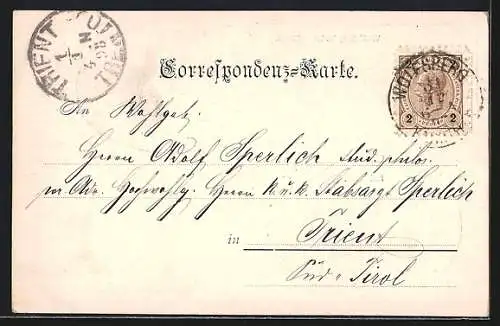 TRIENT
1/4
98
Correspondenz-Karte.
2 2
An Wohlgeb.
Herrn Adolf Sperlich stud. philos.
per Adr. Hochwohlg. Herrn k. u. k. Stabsarzt Sperlich
in Trient
Süd-Tirol